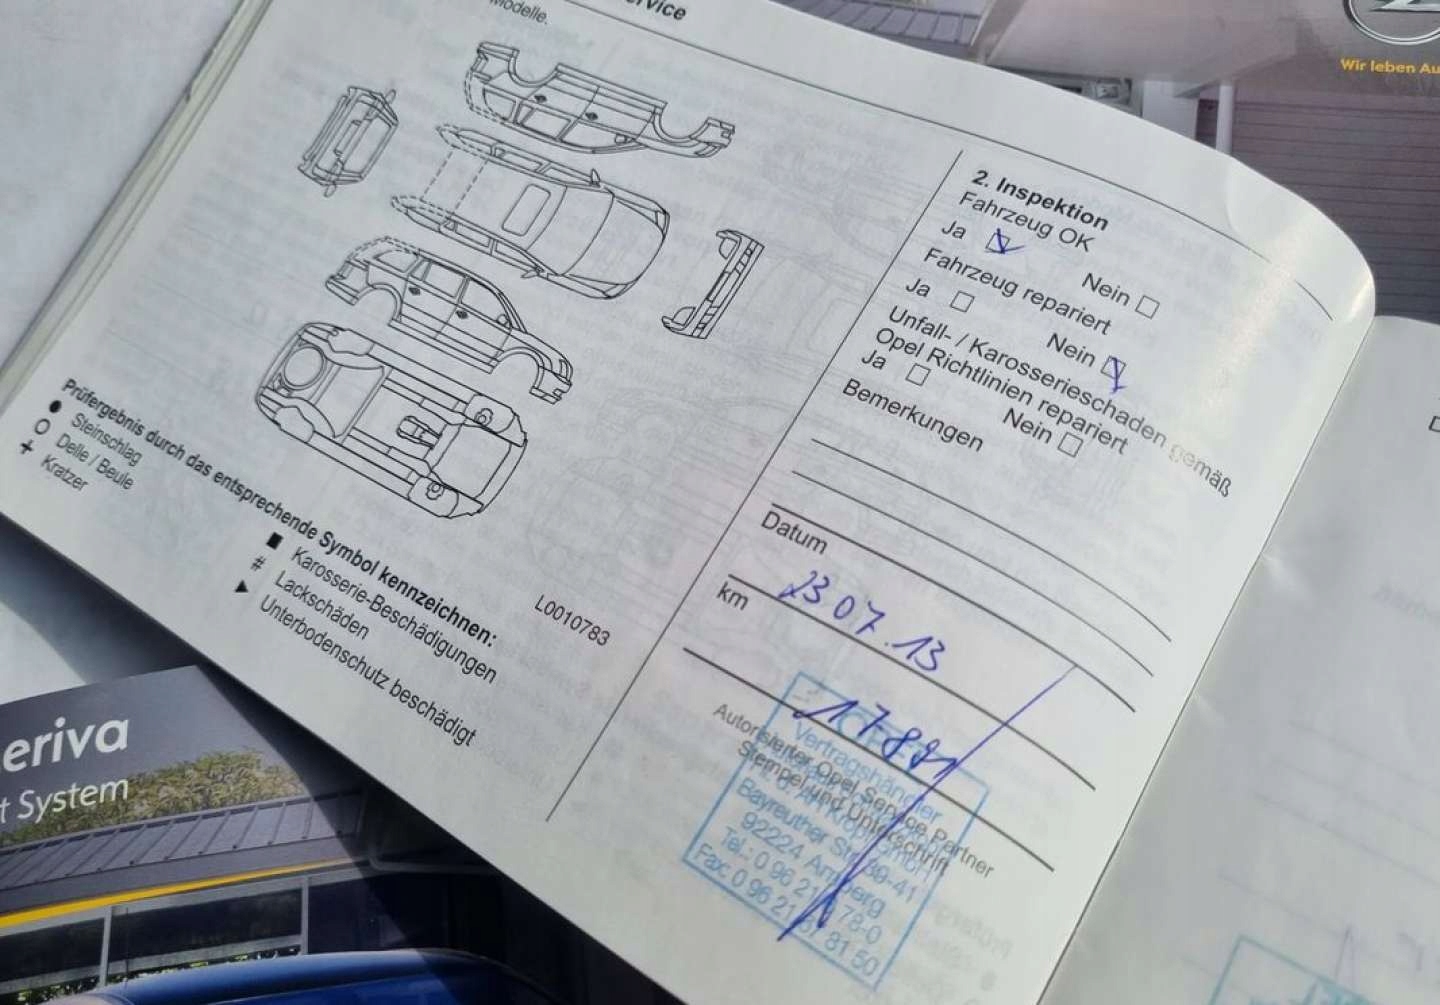 Service
Modelle.
Wir leben Au
2. Inspektion
Fahrzeug OK
Ja Nein
Fahrzeug repariert
Ja Nein
Unfall- / Karosserieschaden gemäß
Opel Richtlinien repariert
Ja Nein
Bemerkungen
Datum
23 07.13
km
Autorisierter Opel Service Partner
Stempel und Unterschrift
Vertragshändler
Bayreuther Str. 39-41
92224 Amberg
Tel.: 0 96 21
78-0
Fax: 0 96 21
81 50
Prüfergebnis durch das entsprechende Symbol kennzeichnen:
● Steinschlag
○ Delle / Beule
+ Kratzer
■ Karosserie-Beschädigungen
# Lackschäden
▶ Unterbodenschutz beschädigt
L0010783
eriva
t System